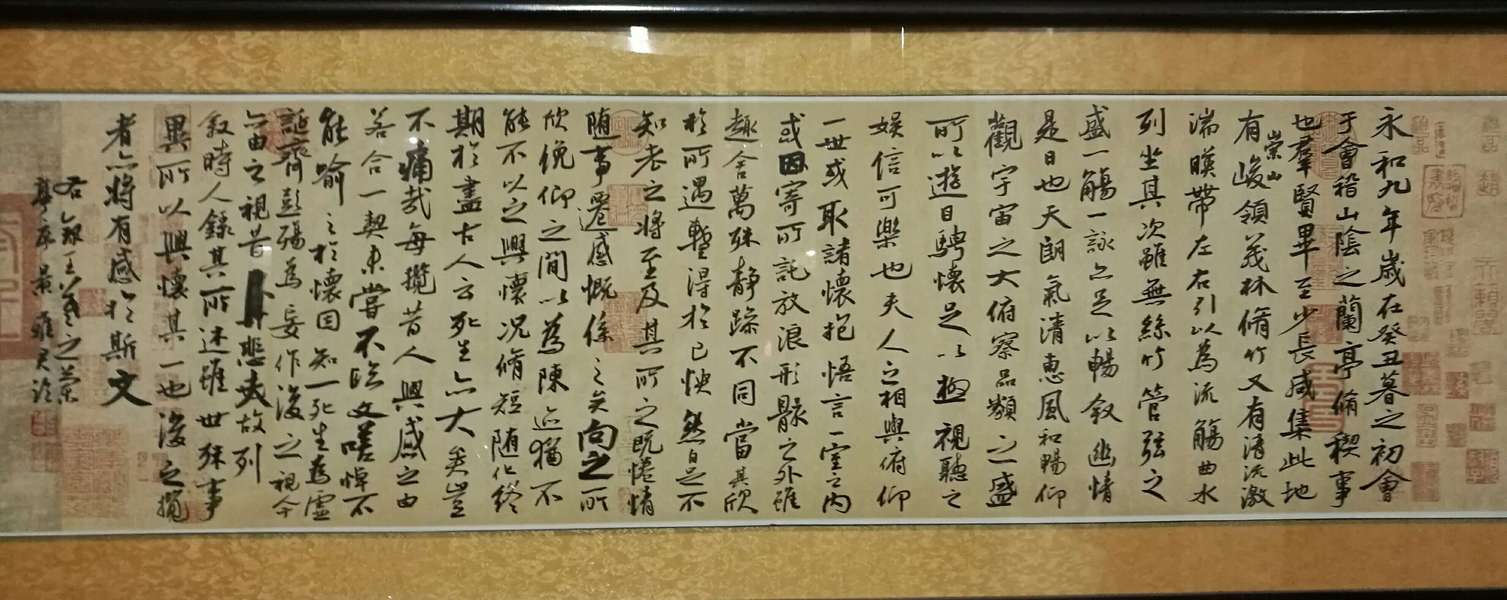 永和九年歲在癸丑暮之初會
于會稽山陰之蘭亭脩稧事
也羣賢畢至少長咸集此地
有崇山峻領茂林脩竹又有清流激
湍暎帶左右引以為流觴曲水
列坐其次雖無絲竹管弦之
盛一觴一詠亦足以暢敘幽情
是日也天朗氣清惠風和暢仰
觀宇宙之大俯察品類之盛
所以遊目騁懷足以極視聽之
娛信可樂也夫人之相與俯仰
一世或取諸懷抱悟言一室之內
或因寄所託放浪形骸之外雖
趣舍萬殊靜躁不同當其欣
於所遇蹔得於己怏然自足不
知老之將至及其所之既惓情
隨事遷感慨係之矣向之所
欣俛仰之間以為陳迹猶不
能不以之興懷況脩短隨化終
期於盡古人云死生亦大矣豈
不痛哉每攬昔人興感之由
若合一契未嘗不臨文嗟悼不
能喻之於懷固知一死生為虛
誕齊彭殤為妄作後之視今
亦由之視昔悲夫故列
敘時人錄其所述雖世殊事
異所以興懷其一也後之攬
者亦將有感於斯文
右錄王羲之蘭